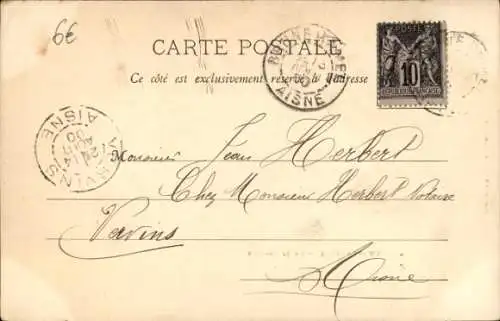 6€
CARTE POSTALE
Ce côté est exclusivement réservé à l'adresse
POSTES
10
RÉPUBLIQUE FRANÇAISE
AISNE
VERVINS
AISNE
Monsieur Jean Herbert
Chez Monsieur Herbert Notaire
Vervins
Aisne